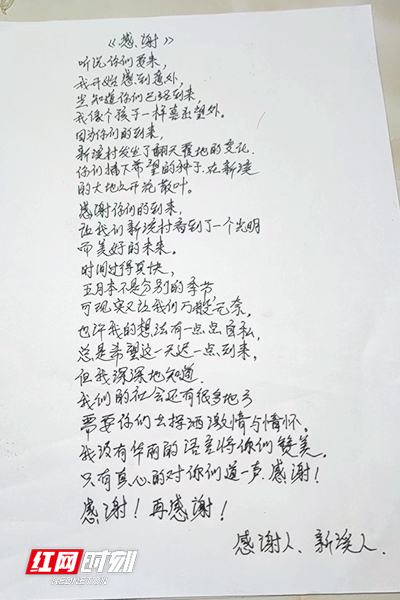 《感谢》
听说你们要来,
我开始感到意外,
当知道你们已经到来,
我像个孩子一样喜出望外。
因为你们的到来,
新溪村发生了翻天覆地的变化.
你们播下希望的种子在新溪
的大地上开花散叶。
感谢你们的到来,
让我们新溪村看到了一个光明
而美好的未来。
时间过得真快,
五月本不是分别的季节,
可现实又让我们万般无奈。
也许我的想法有一点点自私,
总是希望这一天迟一点到来,
但我深深地知道.
我们的社会还有很多地方
需要你们去挥洒激情与情怀。
我没有华丽的语言将你们赞美。
只有真心的对你们道一声感谢!
感谢!再感谢!
感谢人、新溪人.
红网时刻
REDNET.CN